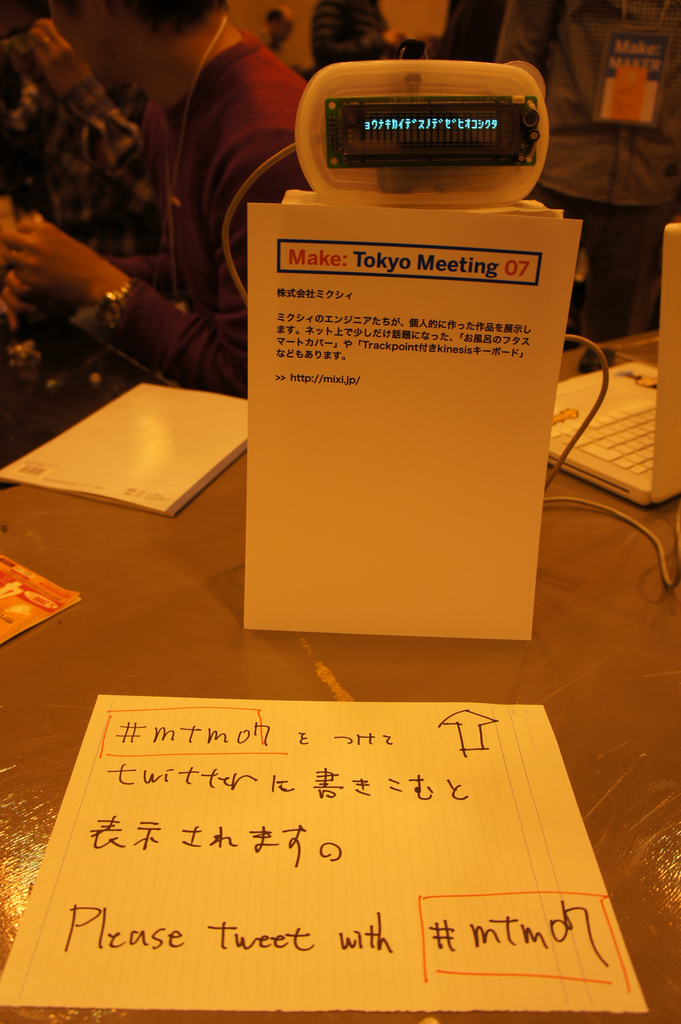 ョウナキカイデスノデゼヒオコシクタ
Make:
MAKER
Make: Tokyo Meeting 07
株式会社ミクシィ
ミクシィのエンジニアたちが、個人的に作った作品を展示し
ます。ネット上で少しだけ話題になった、「お風呂のフタス
マートカバー」や「Trackpoint付きkinesisキーボード」
などもあります。
>> http://mixi.jp/
#mtm07 をつけて
twitterに書きこむと
表示されますの
Please tweet with #mtm07